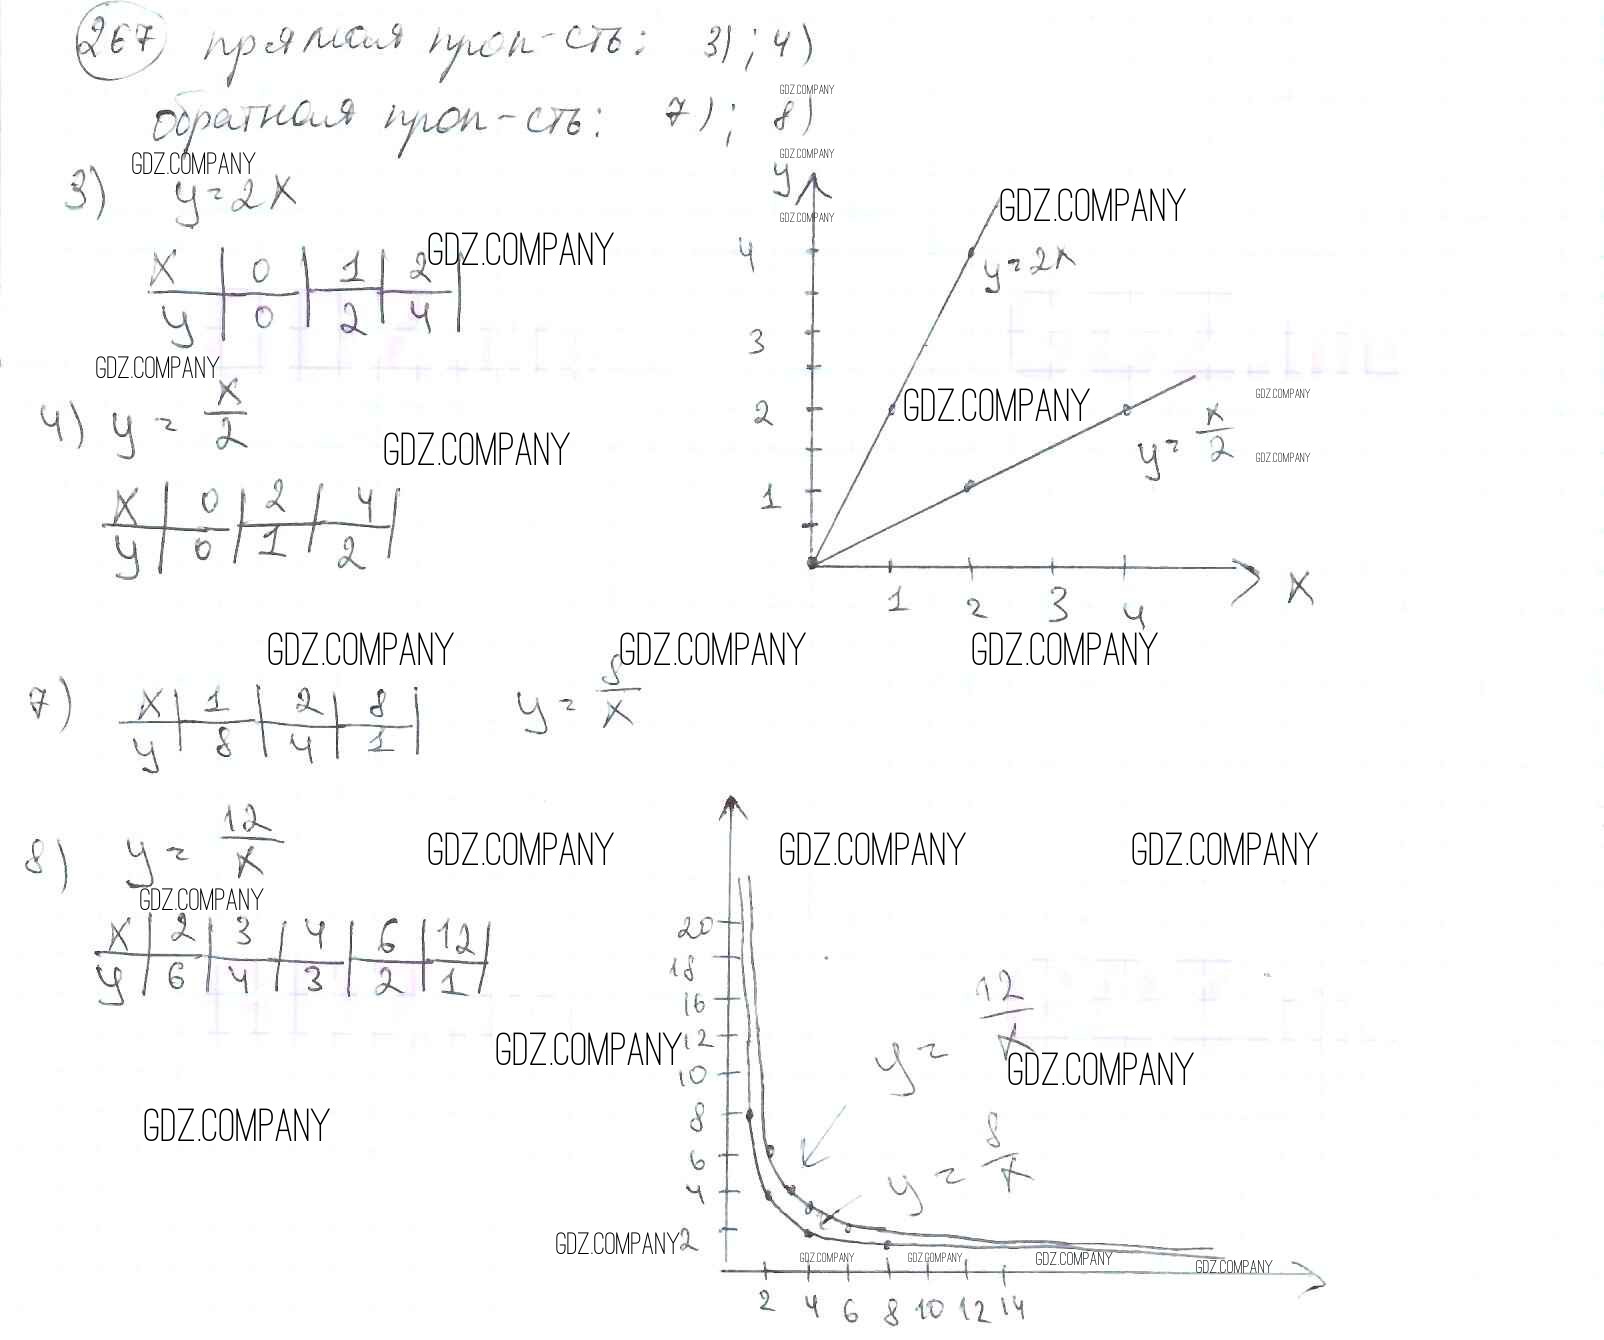 267 прямая проп-сть: 3); 4)
обратная проп-сть: 7); 8)
GDZ.COMPANY
GDZ.COMPANY
GDZ.COMPANY
3) y=2x
GDZ.COMPANY
GDZ.COMPANY
GDZ.COMPANY
x | 0 | 1 | 2 |
y | 0 | 2 | 4 |
GDZ.COMPANY
4) y = x/2
GDZ.COMPANY
x | 0 | 2 | 4 |
y | 0 | 1 | 2 |
y
4
3
2
1
y=2x
GDZ.COMPANY
GDZ.COMPANY
y=x/2
GDZ.COMPANY
1 2 3 4 x
GDZ.COMPANY GDZ.COMPANY GDZ.COMPANY
7) x | 1 | 2 | 8 |
y | 8 | 4 | 1 |
y = 8/x
8) y = 12/x
GDZ.COMPANY GDZ.COMPANY GDZ.COMPANY
GDZ.COMPANY
x | 2 | 3 | 4 | 6 | 12 |
y | 6 | 4 | 3 | 2 | 1 |
20
18
16
12
10
8
6
4
2
GDZ.COMPANY
y = 12/x
GDZ.COMPANY
GDZ.COMPANY
y = 8/x
GDZ.COMPANY
GDZ.COMPANY GDZ.COMPANY GDZ.COMPANY GDZ.COMPANY
2 4 6 8 10 12 14